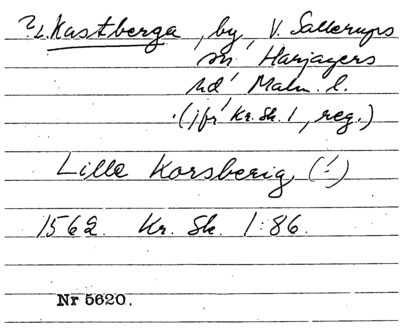 ?L. Kastberga, by, V. Sallerups
sn, Harjagers
hd, Malm. l.
(jfr Kr. Sk. 1, reg.)
Lille Korsberig (!)
1562. Kr. Sk. 1:86.
Nr 5620.